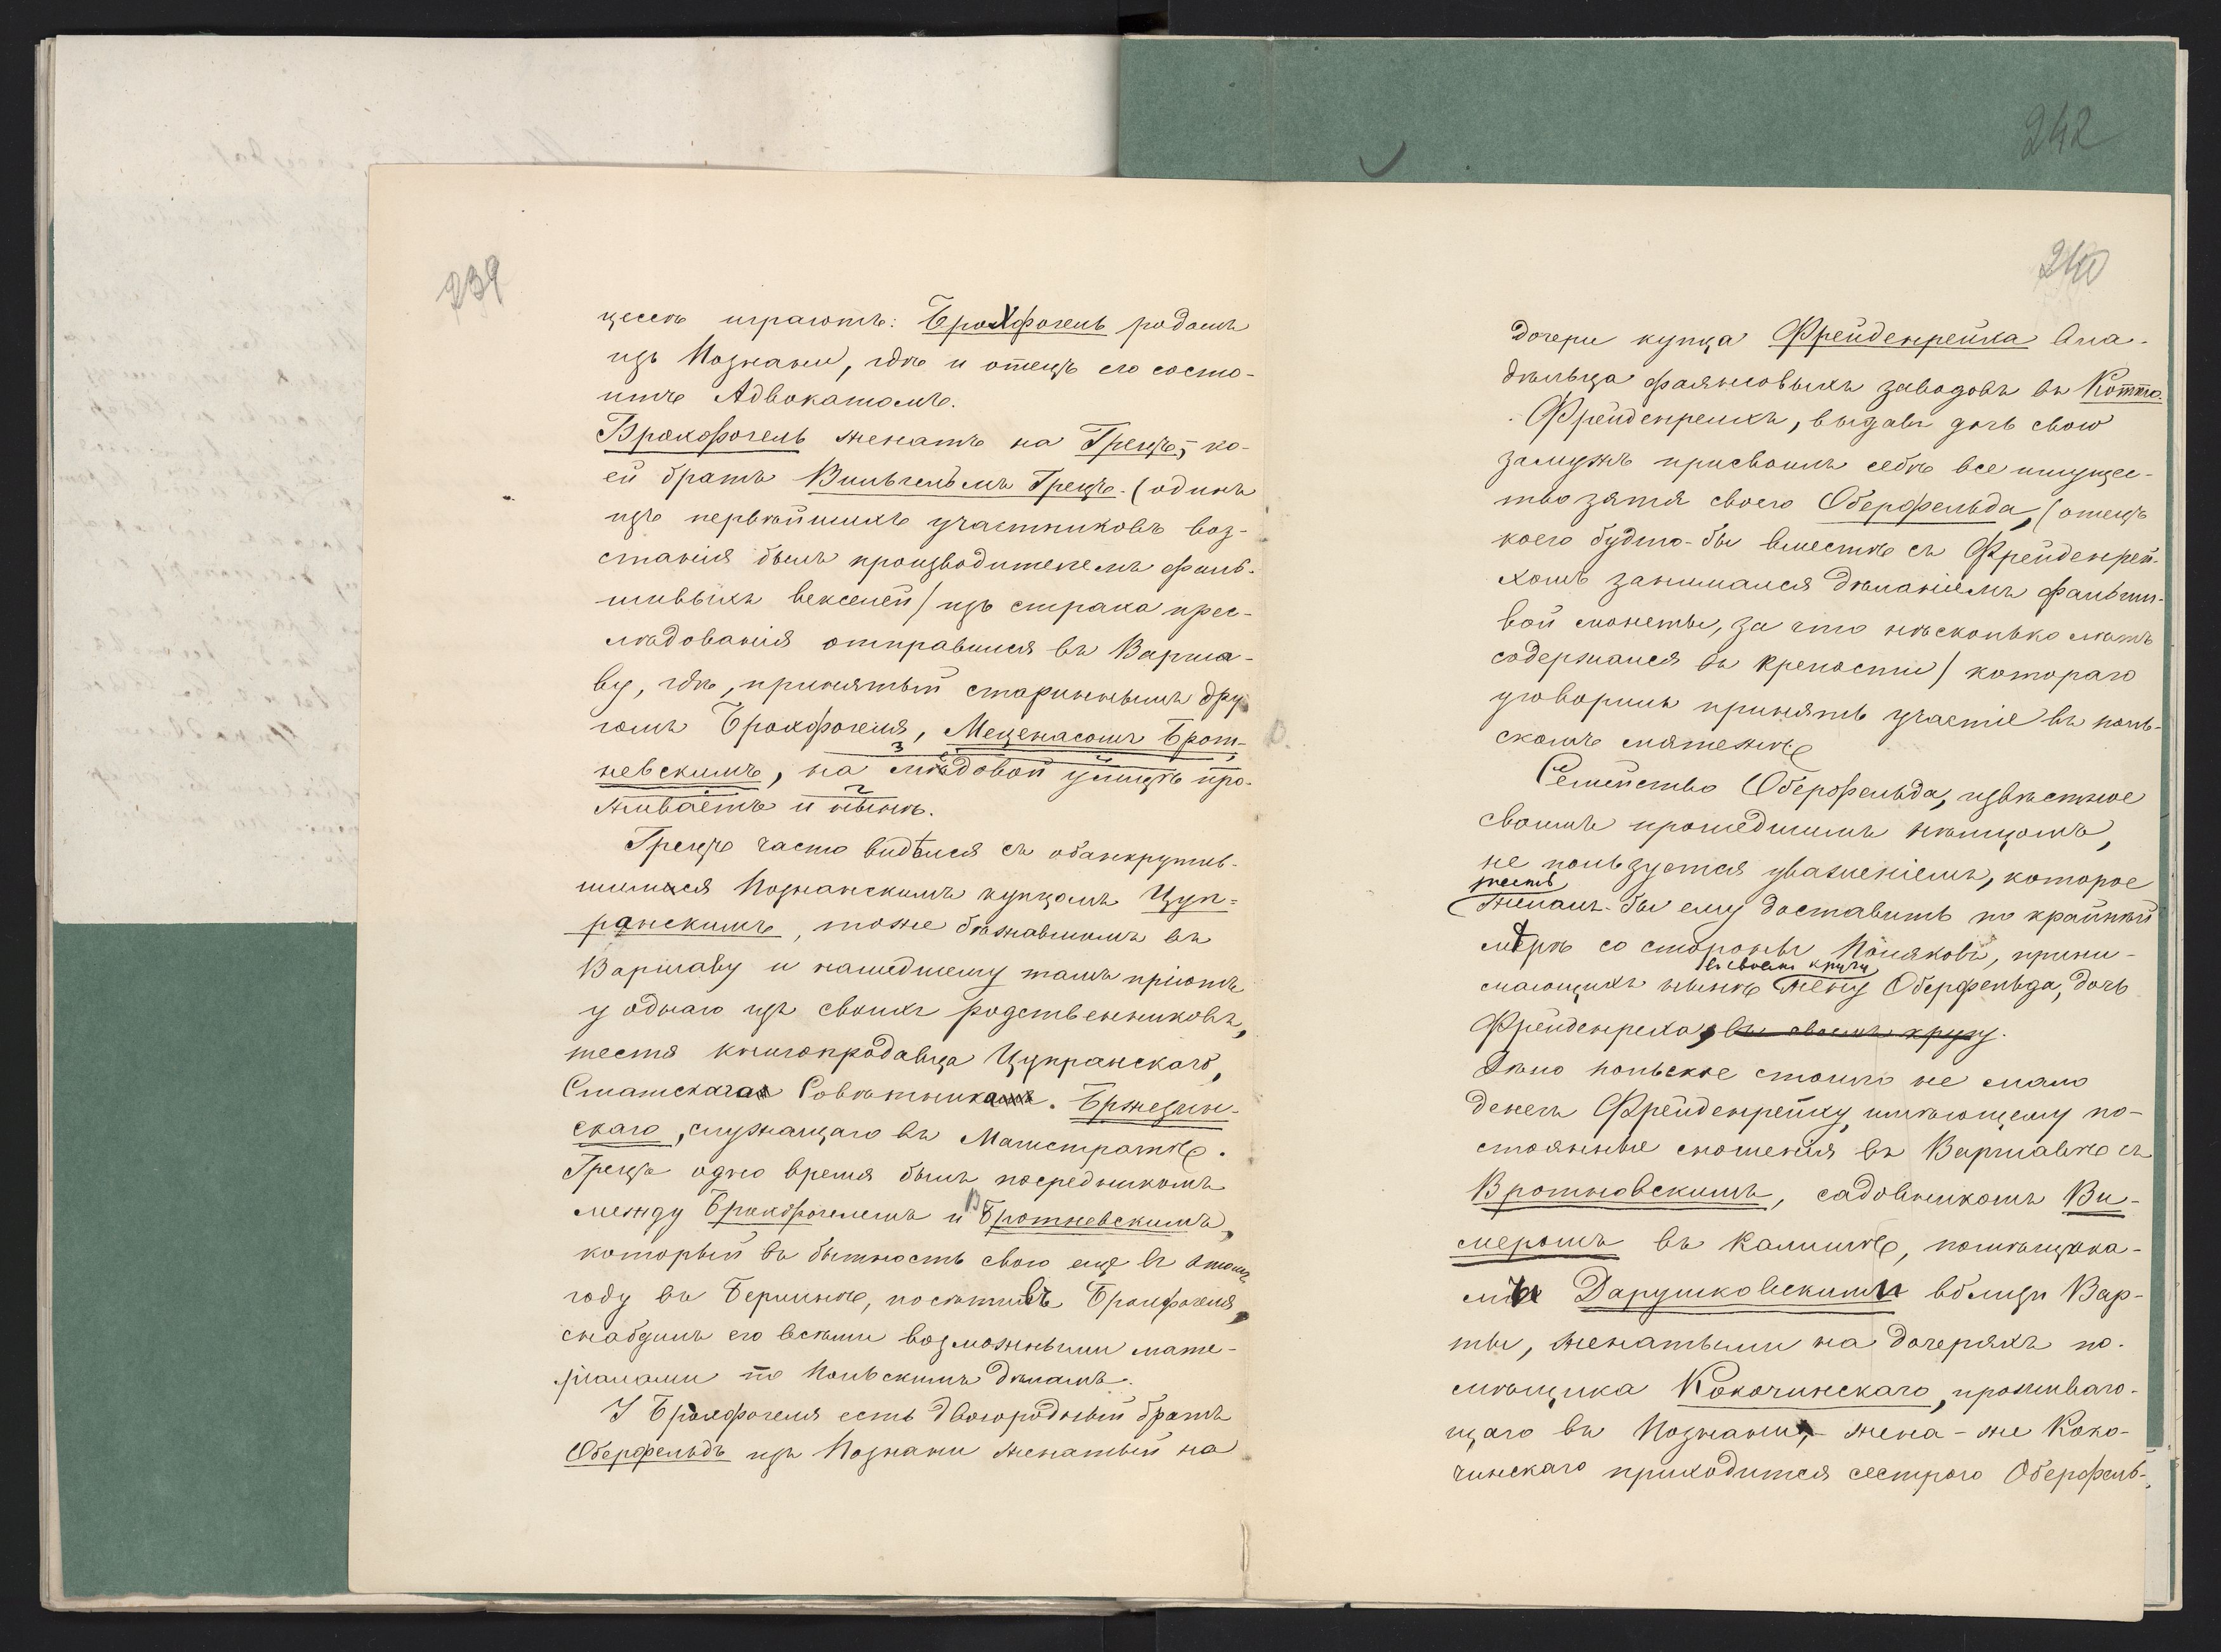 239
цессѣ играютъ: Брохфогель родомъ
изъ Познани, гдѣ и отецъ его состо-
итъ Адвокатомъ.
Брохфогель женатъ на Грецъ, ко-
ей братъ Вильгельмъ Грецъ (одинъ
изъ первѣйшихъ участниковъ воз-
станія былъ производителемъ фаль-
шивыхъ векселей) изъ страха прес-
лѣдованія отправился въ Варша-
ву, гдѣ, принятый стариннымъ дру
гомъ Брохфогеля, Меценасомъ Врот-
невскимъ, на Мѣдовой улицѣ про-
живаетъ и нынѣ.
Грецъ часто видѣлся съ обанкрутив-
шимся Познанскимъ купцомъ Цуп-
ранскимъ, тоже бѣжавшимъ въ
Варшаву и нашедшему тамъ пріютъ
у однаго изъ своихъ родственниковъ,
тестя книгопродавца Цупранскаго,
Статскаго Совѣтника. Бржезин-
скаго, служащаго въ Магистратѣ.
Грецъ одно время былъ посредникомъ
между Брохфогелемъ и Вротневскимъ,
который въ бытность свою еще въ этомъ
году въ Берлинѣ, посѣтивъ Брохфогеля,
снабдилъ его всѣми возможными мате-
ріалами по Польскимъ дѣламъ.
У Брохфогеля есть двоюродный братъ
Оберфельдъ изъ Познани женатый на
242
240
дочери купца Фрейденрейха Вла-
дѣльца фаянсовыхъ заводовъ въ Котто.
Фрейденрейхъ, выдавъ дочь свою
замужъ присвоилъ себѣ все имущес-
тво зятя своего Оберфельда, (отецъ
коего будто-бы вместѣ съ Фрейденрей-
хомъ занимался дѣланіемъ фальши-
вой монеты, за что нѣсколько лѣтъ
содержался въ крепости) котораго
уговорилъ принять участіе въ поль-
скомъ мятежѣ
Семейство Оберфельда, извѣстное
своимъ прошедшимъ нѣмцомъ,
не пользуется уваженіемъ, которое
тесть
желалъ-бы ему доставить по крайнѣй
мѣрѣ со стороны Поляковъ, прини-
въ своемъ кругу
мающихъ нынѣ жену Оберфельда, дочь
Фрейденреха, въ своемъ кругу.
Дѣло польское стоило не мало
денегъ Фрейденрейху, имѣющему по-
стоянные сношенія въ Варшавѣ съ
Вротновскимъ, садовникомъ Ви-
меромъ въ Калишѣ, помѣщика-
ми Дарушковскими вблизи Вар-
ты, женатыми на дочеряхъ по-
мѣщика Кокочинскаго, проживаю-
щаго въ Познани, жена-же Коко-
чинскаго приходится сестрою Оберфель-